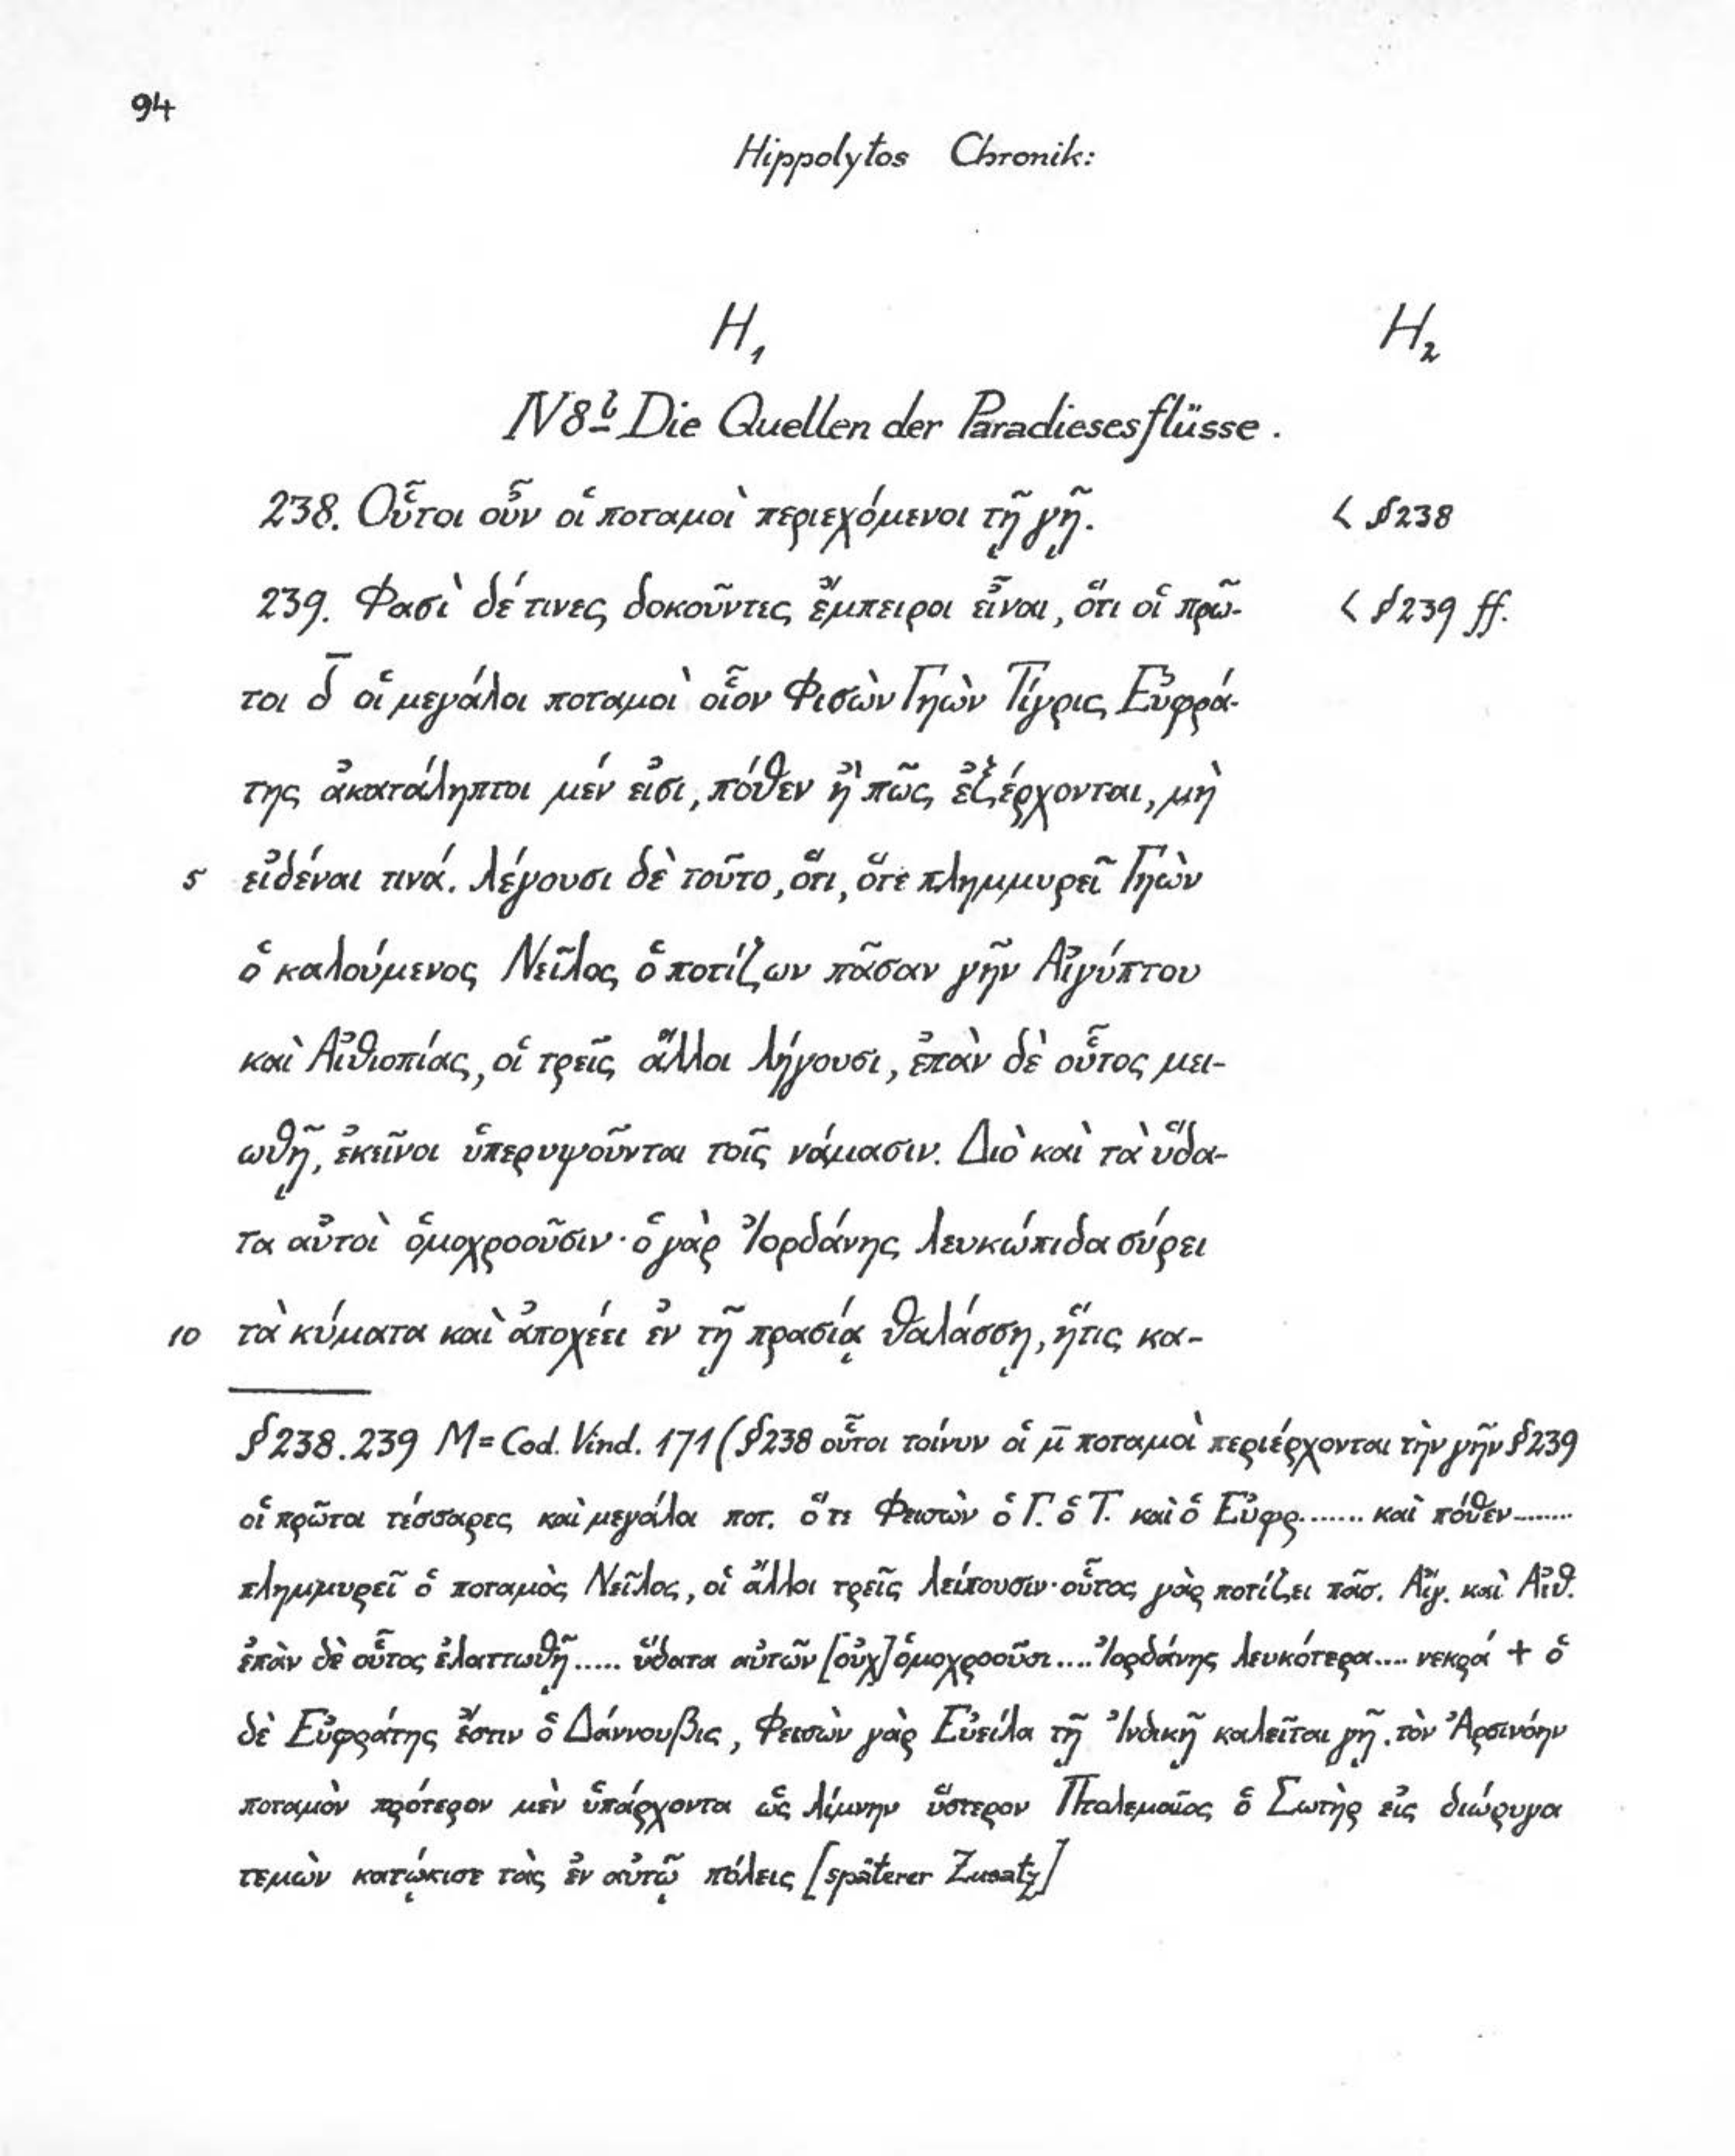 94
Hippolytos Chronik:
H₁ H₂
IV 8b Die Quellen der Paradiesesflüsse.
238. Οὗτοι οὖν οἱ ποταμοὶ περιεχόμενοι τῇ γῇ. < §238
239. Φασὶ δέ τινες δοκοῦντες ἔμπειροι εἶναι, ὅτι οἱ πρῶ- < §239 ff.
τοι δ̄ οἱ μεγάλοι ποταμοὶ οἷον Φισὼν Γηὼν Τίγρις Εὐφρά-
της ἀκατάληπτοι μέν εἰσι, πόθεν ἢ πῶς ἐξέρχονται, μὴ
5 εἰδέναι τινά. λέγουσι δὲ τοῦτο, ὅτι, ὅτε πλημμυρεῖ Γηὼν
ὁ καλούμενος Νεῖλος ὁ ποτίζων πᾶσαν γῆν Αἰγύπτου
καὶ Αἰθιοπίας, οἱ τρεῖς ἄλλοι λήγουσι, ἐπὰν δὲ οὗτος μει-
ωθῇ, ἐκεῖνοι ὑπερυψοῦνται τοῖς νάμασιν. Διὸ καὶ τὰ ὕδα-
τα αὐτοὶ ὁμοχροοῦσιν· ὁ γὰρ Ἰορδάνης λευκώπιδα σύρει
10 τὰ κύματα καὶ ἀποχέει ἐν τῇ πρασίᾳ θαλάσσῃ, ἥτις κα-
§238.239 M = Cod. Vind. 171 (§238 οὗτοι τοίνυν οἱ μ̄ ποταμοὶ περιέρχονται τὴν γῆν §239
οἱ πρῶτοι τέσσαρες καὶ μεγάλοι ποτ. ὅτι Φεισὼν ὁ Γ. ὁ Τ. καὶ ὁ Εὐφρ....... καὶ πόθεν........
πλημμυρεῖ ὁ ποταμὸς Νεῖλος, οἱ ἄλλοι τρεῖς λείπουσιν· οὗτος γὰρ ποτίζει πᾶσ. Αἴγ. καὶ Αἰθ.
ἐπὰν δὲ οὗτος ἐλαττωθῇ..... ὕδατα αὐτῶν [οὐχ] ὁμοχροοῦσι.... Ἰορδάνης λευκότερα.... νεκρά + ὁ
δὲ Εὐφράτης ἔστιν ὁ Δάννουβις, Φεισὼν γὰρ Εὐείλα τῇ Ἰνδικῇ καλεῖται γῇ. τὸν Ἀρσινόην
ποταμὸν πρότερον μὲν ὑπάρχοντα ὡς λίμνην ὕστερον Πτολεμαῖος ὁ Σωτὴρ εἰς διώρυγα
τεμὼν κατῴκισε τὰς ἐν αὐτῷ πόλεις [späterer Zusatz]